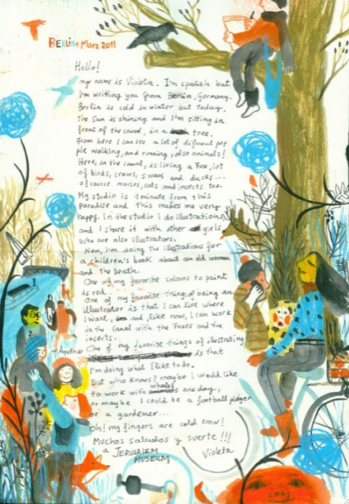 BERLIN, MARZ 2011
Hello!
my name is Violeta. I'm spanish but
I'm writting you from Berlin, Germany.
Berlin is cold in winter but today,
the sun is shining and I'm sitting in
front of the canal, in a tree.
From here I can see a lot of different peo
ple walking, and running, also animals!
Here, in the canal, is living a Fox, lot
of birds, crows, swans and ducks...
of course mouses, rats and insects too.
My studio is 1 minute from this
paradise and this makes me very
happy. In the studio I do illustrations
and I share it with other girls
who are also illustrators.
Now, I'm doing the illustrations for
a children's book about an old woman
and the death.
One of my favorite colours to paint
is red.
One of my favorite things of being an
illustrator is that I can live where
I want, and like now, I can work
in the canal with the Foxes and the
insects.
Another One of my favorise things of illustrating
is that
I'm doing what I like to do.
But who knows? maybe I would like
to work with whales one day,
or maybe I could be a football player
or a gardener...
Oh! my fingers are cold now!
Muchos saludos y suerte!!!
a JERUSALEM
MUSEUM
Violeta